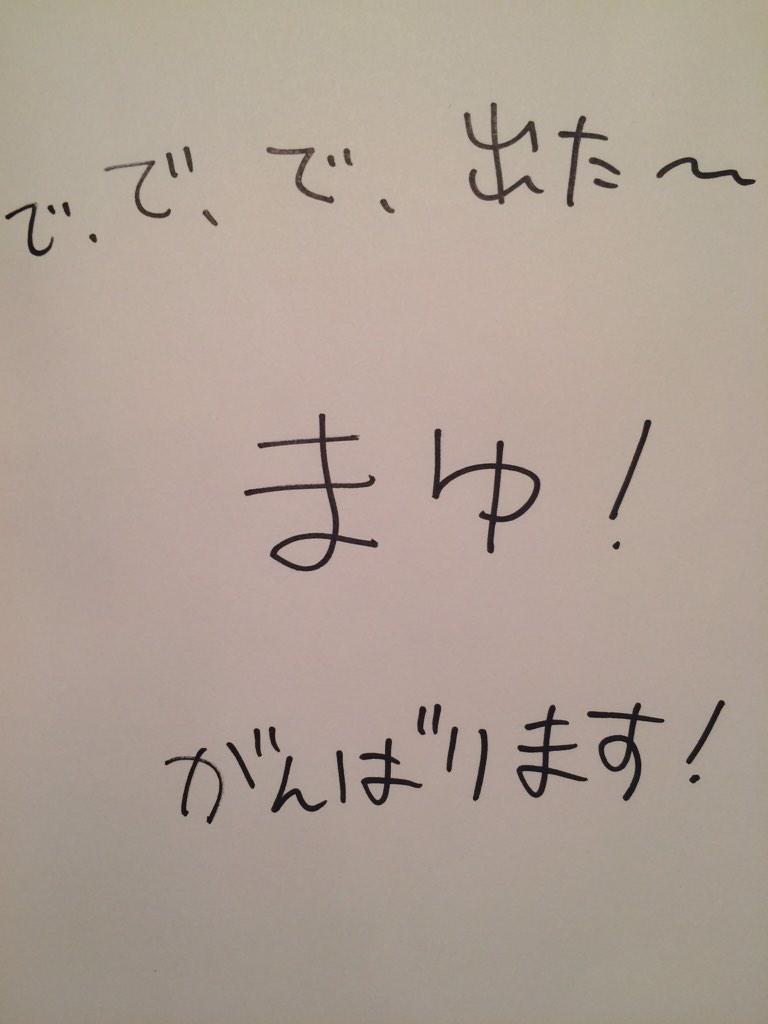 で、で、で、出た〜
まゆ！
がんばります！